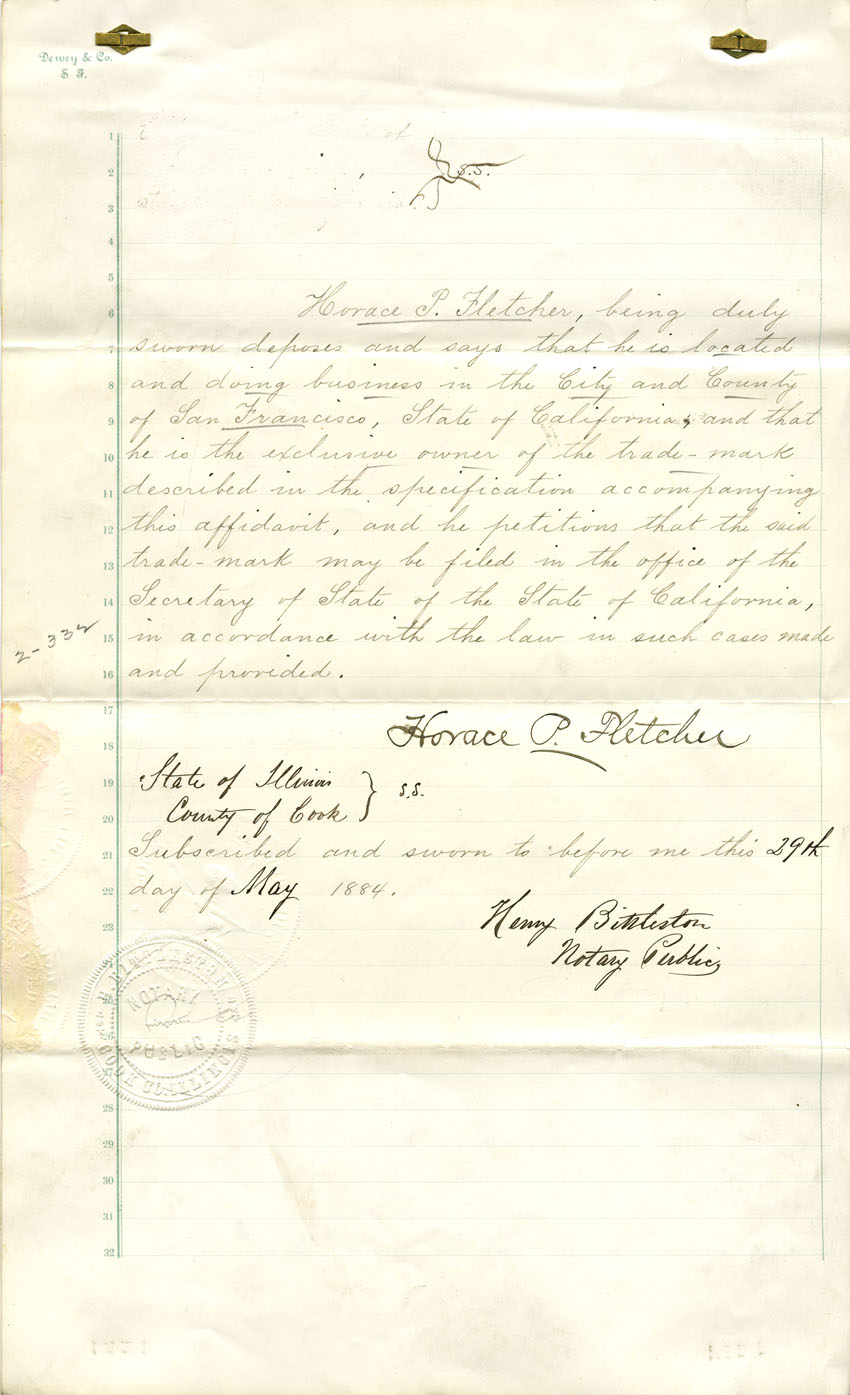 Dewey & Co.
S. F.
1
2
s.s.
3
4
5
6 Horace P. Fletcher, being duly
7 sworn deposes and says that he is located
8 and doing business in the City and County
9 of San Francisco, State of California, and that
10 he is the exclusive owner of the trade-mark
11 described in the specification accompanying
12 this affidavit, and he petitions that the said
13 trade-mark may be filed in the office of the
14 Secretary of State of the State of California,
2-332
15 in accordance with the law in such cases made
16 and provided.
17
18 Horace P. Fletcher
19 State of Illinois
s.s.
20 County of Cook
21 Subscribed and sworn to before me this 29th
22 day of May 1884.
23 Henry Bittleston
Notary Public
H. BITTLESTON
NOTARY
PUBLIC
COOK CO. ILLINOIS
26
27
28
29
30
31
32